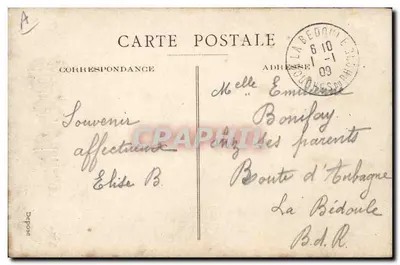 A
CARTE POSTALE
CORRESPONDANCE
ADRESSE
LA BEDOULE
6 10
1 -1
09
Melle Emilienne
Bonifay
chez ses parents
Route d'Aubagne
La Bédoule
B.d.R.
Souvenir
affectueux
Elise B.
CPAPHIL
Déposé